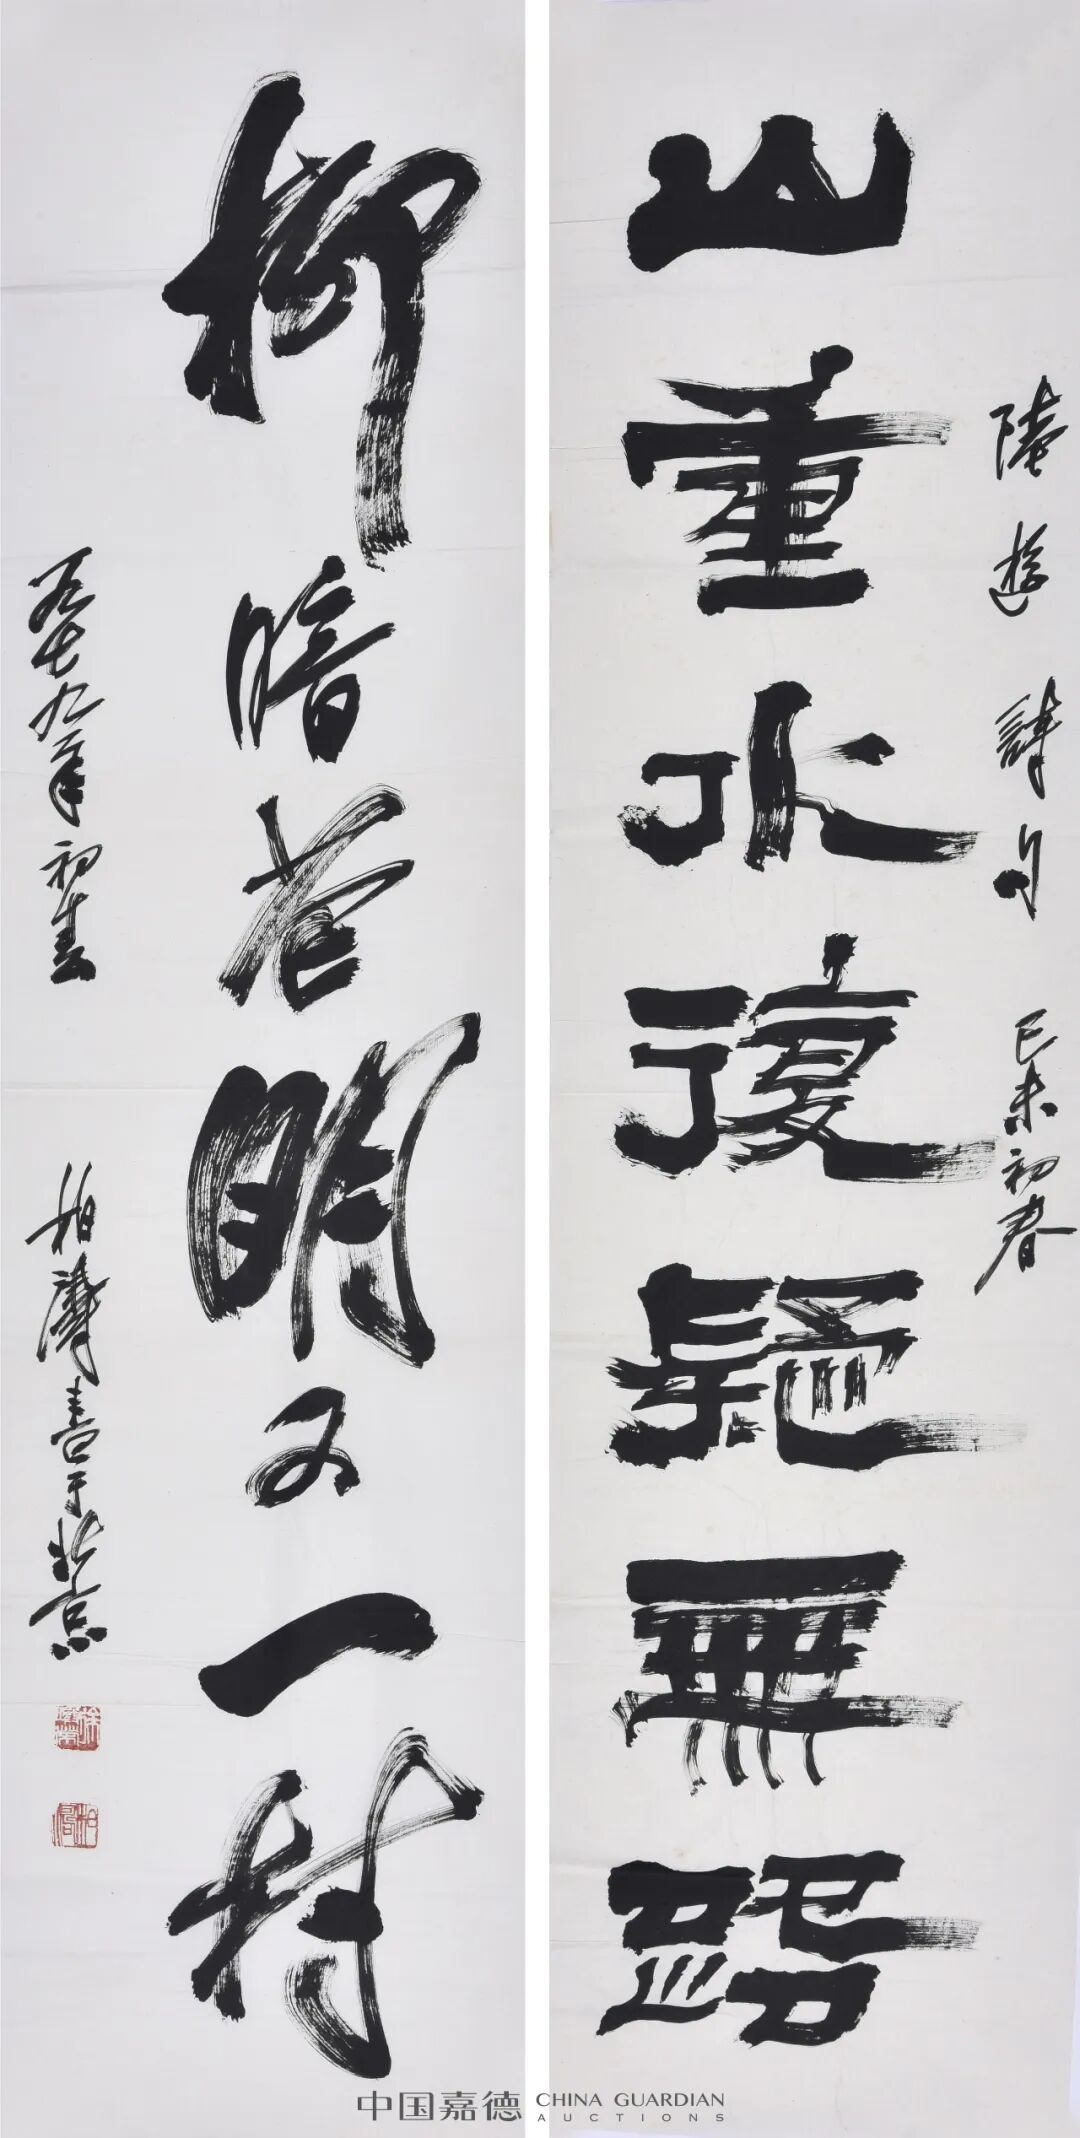 山重水復疑無路
陸遊詩句 己未初春
柳暗花明又一村
一九七九年初春 柏濤書于北京
中国嘉德 CHINA GUARDIAN
AUCTIONS